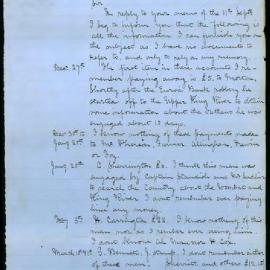 Sir
In reply to your memo of the 11th Sept
I beg to inform you that the following is
all the information I can furnish you on
the subject as I have no documents to
refer to, and rely on my memory.
The first item in these accounts I re-
member paying away is £5 to
shortly after the Euroa Bank robbery he
started off to the Upper King River to obtain
some information about the outlaws he was
engaged about 10 days.
I know nothing of these payments made
to
or Foy.
Jany 28th C. Sherrington £2. I think this man was
engaged by Captain Standish and
to search the Country about the Wombat and
King River I dont remember ever paying
him any money.
H. Carrington £22 I know nothing of this
man nor as I remember ever seeing him
I dont know
March G. Bennett, J. I dont remember either
of these men. Sherritt and others £12.15